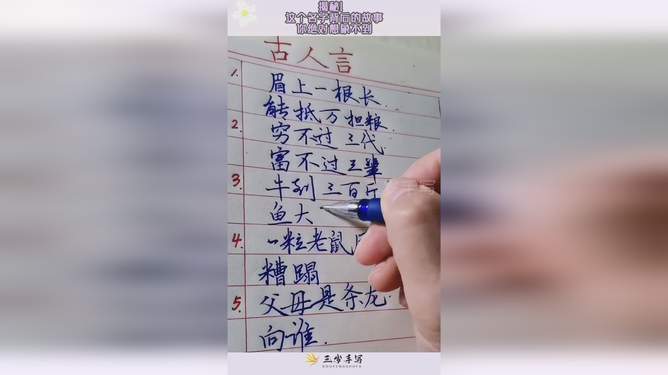 揭秘!
这个名字背后的故事
你绝对想象不到
古人言
1. 眉上一根长
能抵万担粮.
2. 穷不过三代.
富不过三辈
3. 牛到三百斤
鱼大
4. 一粒老鼠
糟蹋
5. 父母是条龙.
向谁.
三少手写